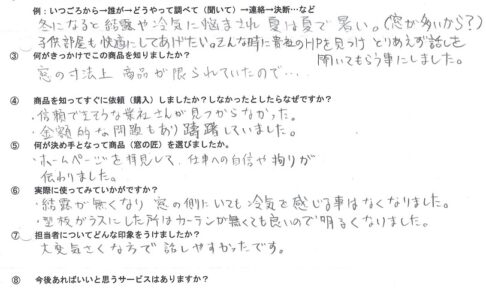 例：いつごろから→誰が→どうやって調べて（聞いて）→連絡→決断…など
冬になると結露や冷気に悩まされ 夏は夏で暑い。(窓が多いから？)
子供部屋も快適にしてあげたい。そんな時に貴社のHPを見つけ とりあえず話しを
聞いてもらう事にしました。
③ 何がきっかけでこの商品を知りましたか？
窓の寸法上 商品が限られていたので…。
④ 商品を知ってすぐに依頼（購入）しましたか？しなかったとしたらなぜですか？
・信頼できそうな業社さんが見つからなかった。
・金額的な問題もあり躊躇していました。
⑤ 何が決め手となって商品（窓の匠）を選びましたか。
・ホームページを拝見して、仕事への自信や拘りが
伝わりました。
⑥ 実際に使ってみていかがですか？
・結露が無くなり 窓の側にいても冷気を感じる事はなくなりました。
・型板ガラスにした所はカーテンが無くても良いので明るくなりました。
⑦ 担当者についてどんな印象をうけましたか？
大変気さくな方で 話しやすかったです。
⑧ 今後あればいいと思うサービスはありますか？